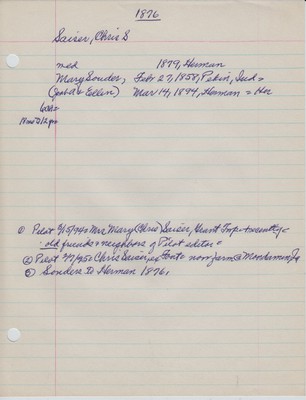 1876
Saiser, Chris S
med 1879, Herman
Mary Souder, Feb 27, 1858, Pekin, Ind =
(Josh A + Ellen) Mar 14, 1894, Herman = Her
① Pilot 2/15/940 Mrs Mary (Chris) Saiser, Grant Twp + recently =
old friends + neighbors of Pilot editor =
② Pilot Chris Saiser, now farm @ Mondamin, Ia
③ Souders to Herman 1876,